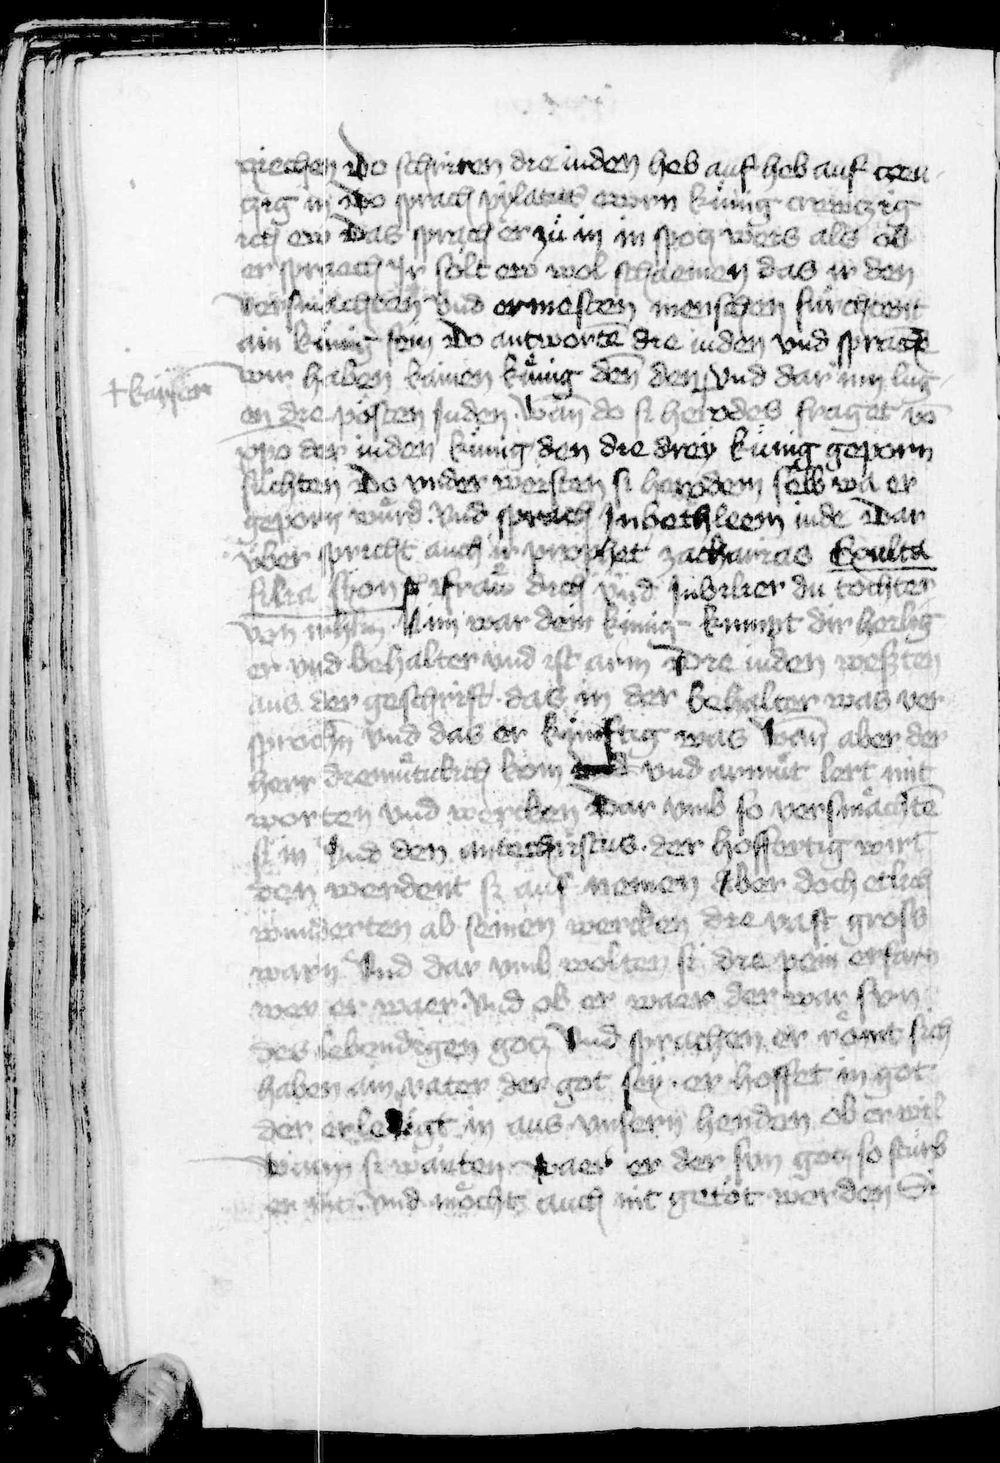 riechen Do schriren die iuden heb auf heb auf creu-
czig in Do sprach pylatus ewrn künig crewczig
ich ew Das sprach er zü in in spotz weis als ob
er spraech Ir solt ew wol schaemen das ir den
versmächten vnd ermesten menschen fürchtent
ain künig sein Do antwortē die iuden vnd sprachē
wir haben kainen künig deñ den vnd dar inn lug-
+ kayser
en die pösten Juden. Wañ do si herodes fraget vō
wo der iuden künig den die drey künig geporn
süchten Do vnder weisten si herodem selb wa er
geporn würd. vnd sprach In bethleem iude Dar
über spricht auch ir prophet zacharias Exulta
filia syon fräw dich vnd Jubilier du tochter
von irhlm. Nim war dein künig kumpt dir heilig
er vnd behalter vnd ist arm Die iuden weßten
aus der geschrift das in der behalter was ver-
sprochñ vnd das er künftig was Wañ aber der
herr diemütiklich kom vnd armüt lert mit
worten vnd wercken Dar vmb so versmächtē
si in Vnd den antechristus der hoffertig wirt
den werdent si auf nemen Aber doch etlich
wunderten ab seinen wercken die vast gross
warn Vnd dar vmb wolten si die pein erfarn
wer er waer. vnd ob er waer der war sun
des lebendigen gotz Vnd sprachen er römt sich
haben ain vater der got sey. er hoffet in got
der erledigt in aus vnsern henden ob er wil
Wann si wanten waer er der sun gotz so stürb
er nit. vnd möcht auch nit getöt werden Si